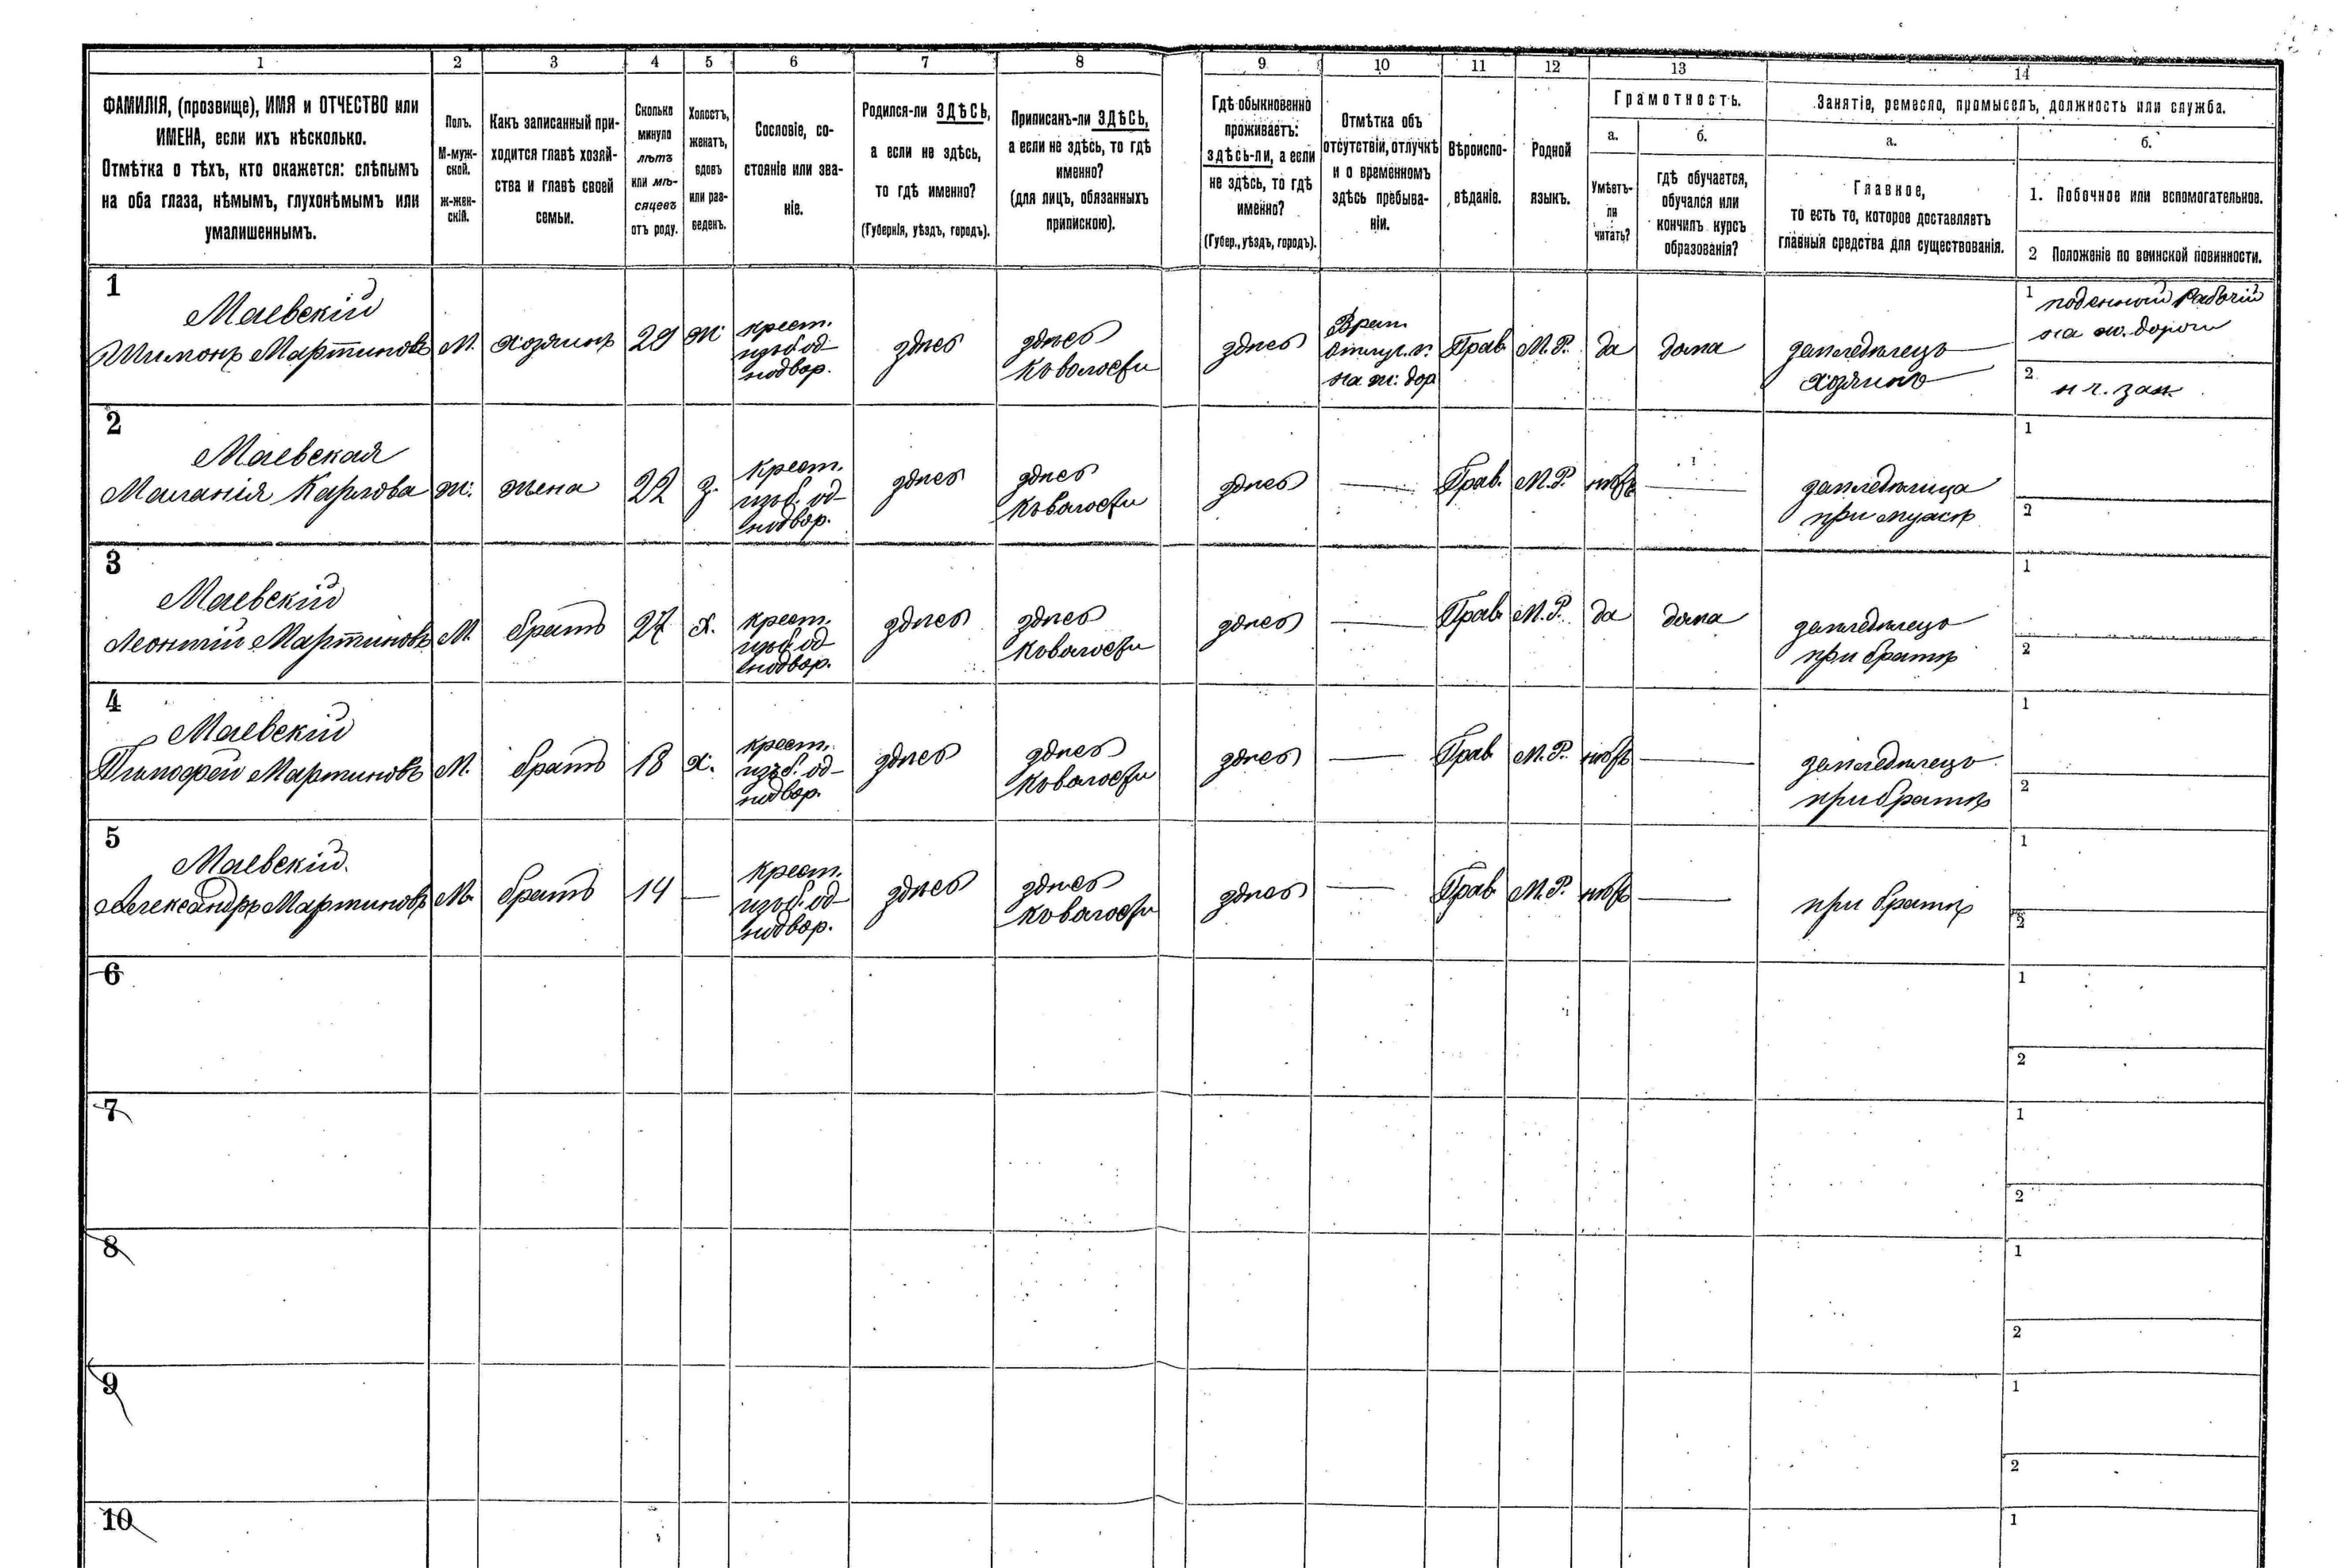 1 2 3 4 5 6 7 8 9 10 11 12 13 14
ФАМИЛІЯ, (прозвище), ИМЯ и ОТЧЕСТВО или
ИМЕНА, если ихъ нѣсколько.
Отмѣтка о тѣхъ, кто окажется: слѣпымъ
на оба глаза, нѣмымъ, глухонѣмымъ или
умалишеннымъ.
Полъ.
М-муж-
ской.
ж-жен-
скій.
Какъ записанный при-
ходится главѣ хозяй-
ства и главѣ своей
семьи.
Сколько
минуло
лѣтъ
или мѣ-
сяцевъ
отъ роду.
Холостъ,
женатъ,
вдовъ
или раз-
веденъ.
Сословіе, со-
стояніе или зва-
ніе.
Родился-ли ЗДѢСЬ,
а если не здѣсь,
то гдѣ именно?
(Губернія, уѣздъ, городъ).
Приписанъ-ли ЗДѢСЬ,
а если не здѣсь, то гдѣ
именно?
(для лицъ, обязанныхъ
припискою).
Гдѣ обыкновенно
проживаетъ:
здѣсь-ли, а если
не здѣсь, то гдѣ
именно?
(Губер., уѣздъ, городъ).
Отмѣтка объ
отсутствіи, отлучкѣ
и о временномъ
здѣсь пребыва-
ніи.
Вѣроиспо-
вѣданіе.
Родной
языкъ.
Грамотность.
а.
Умѣетъ-
ли
читать?
б.
гдѣ обучается,
обучался или
кончилъ курсъ
образованія?
Занятіе, ремесло, промыселъ, должность или служба.
а.
Главное,
то есть то, которое доставляетъ
главныя средства для существованія.
б.
1. Побочное или вспомогательное.
2 Положеніе по воинской повинности.
1
Маевскій
Шимонъ Мартиновъ
М.
хозяинъ
29
ж.
крест.
изъ б. од-
нодвор.
здѣсь
здѣсь
къ волости
здѣсь
Врем.
Отлуч.
на ж: дор
Прав.
М. Р.
да
дома
земледѣлецъ
хозяинъ
1 поденный рабочій
на ж. дороги
2 н ч. зап.
2
Маевская
Маланія Карлова
ж.
жена
22
з.
крест.
изъ б. од-
нодвор.
здѣсь
здѣсь
къ волости
здѣсь
—
Прав.
М. Р.
нѣтъ
—
земледѣлица
при мужѣ
1
2
3
Маевскій
Леонтій Мартиновъ
М.
братъ
27
х.
крест.
изъ б. од-
нодвор.
здѣсь
здѣсь
къ волости
здѣсь
—
Прав.
М. Р.
да
дома
земледѣлецъ
при братѣ
1
2
4
Маевскій
Тимофей Мартиновъ
М.
братъ
18
х.
крест.
изъ б. од-
нодвор.
здѣсь
здѣсь
къ волости
здѣсь
—
Прав.
М. Р.
нѣтъ
—
земледѣлецъ
при братѣ
1
2
5
Маевскій.
Александръ Мартиновъ
М.
братъ
14
—
крест.
изъ б. од-
нодвор.
здѣсь
здѣсь
къ волости
здѣсь
—
Прав.
М. Р.
нѣтъ
—
при братѣ
1
2
6
1
2
7
1
2
8
1
2
9
1
2
10
1